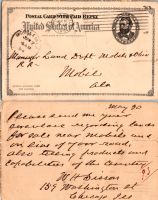 POSTAL CARD WITH PAID REPLY
United States of America
Manager Land Dept Mobile & Ohio
R.R.
Mobile
Ala
May 30
Please send me your
circulars regarding lands
for sale near Mobile and
on line of your road,
also trading products and
capabilities of the country
W H
139 Washington St
Chicago Ills